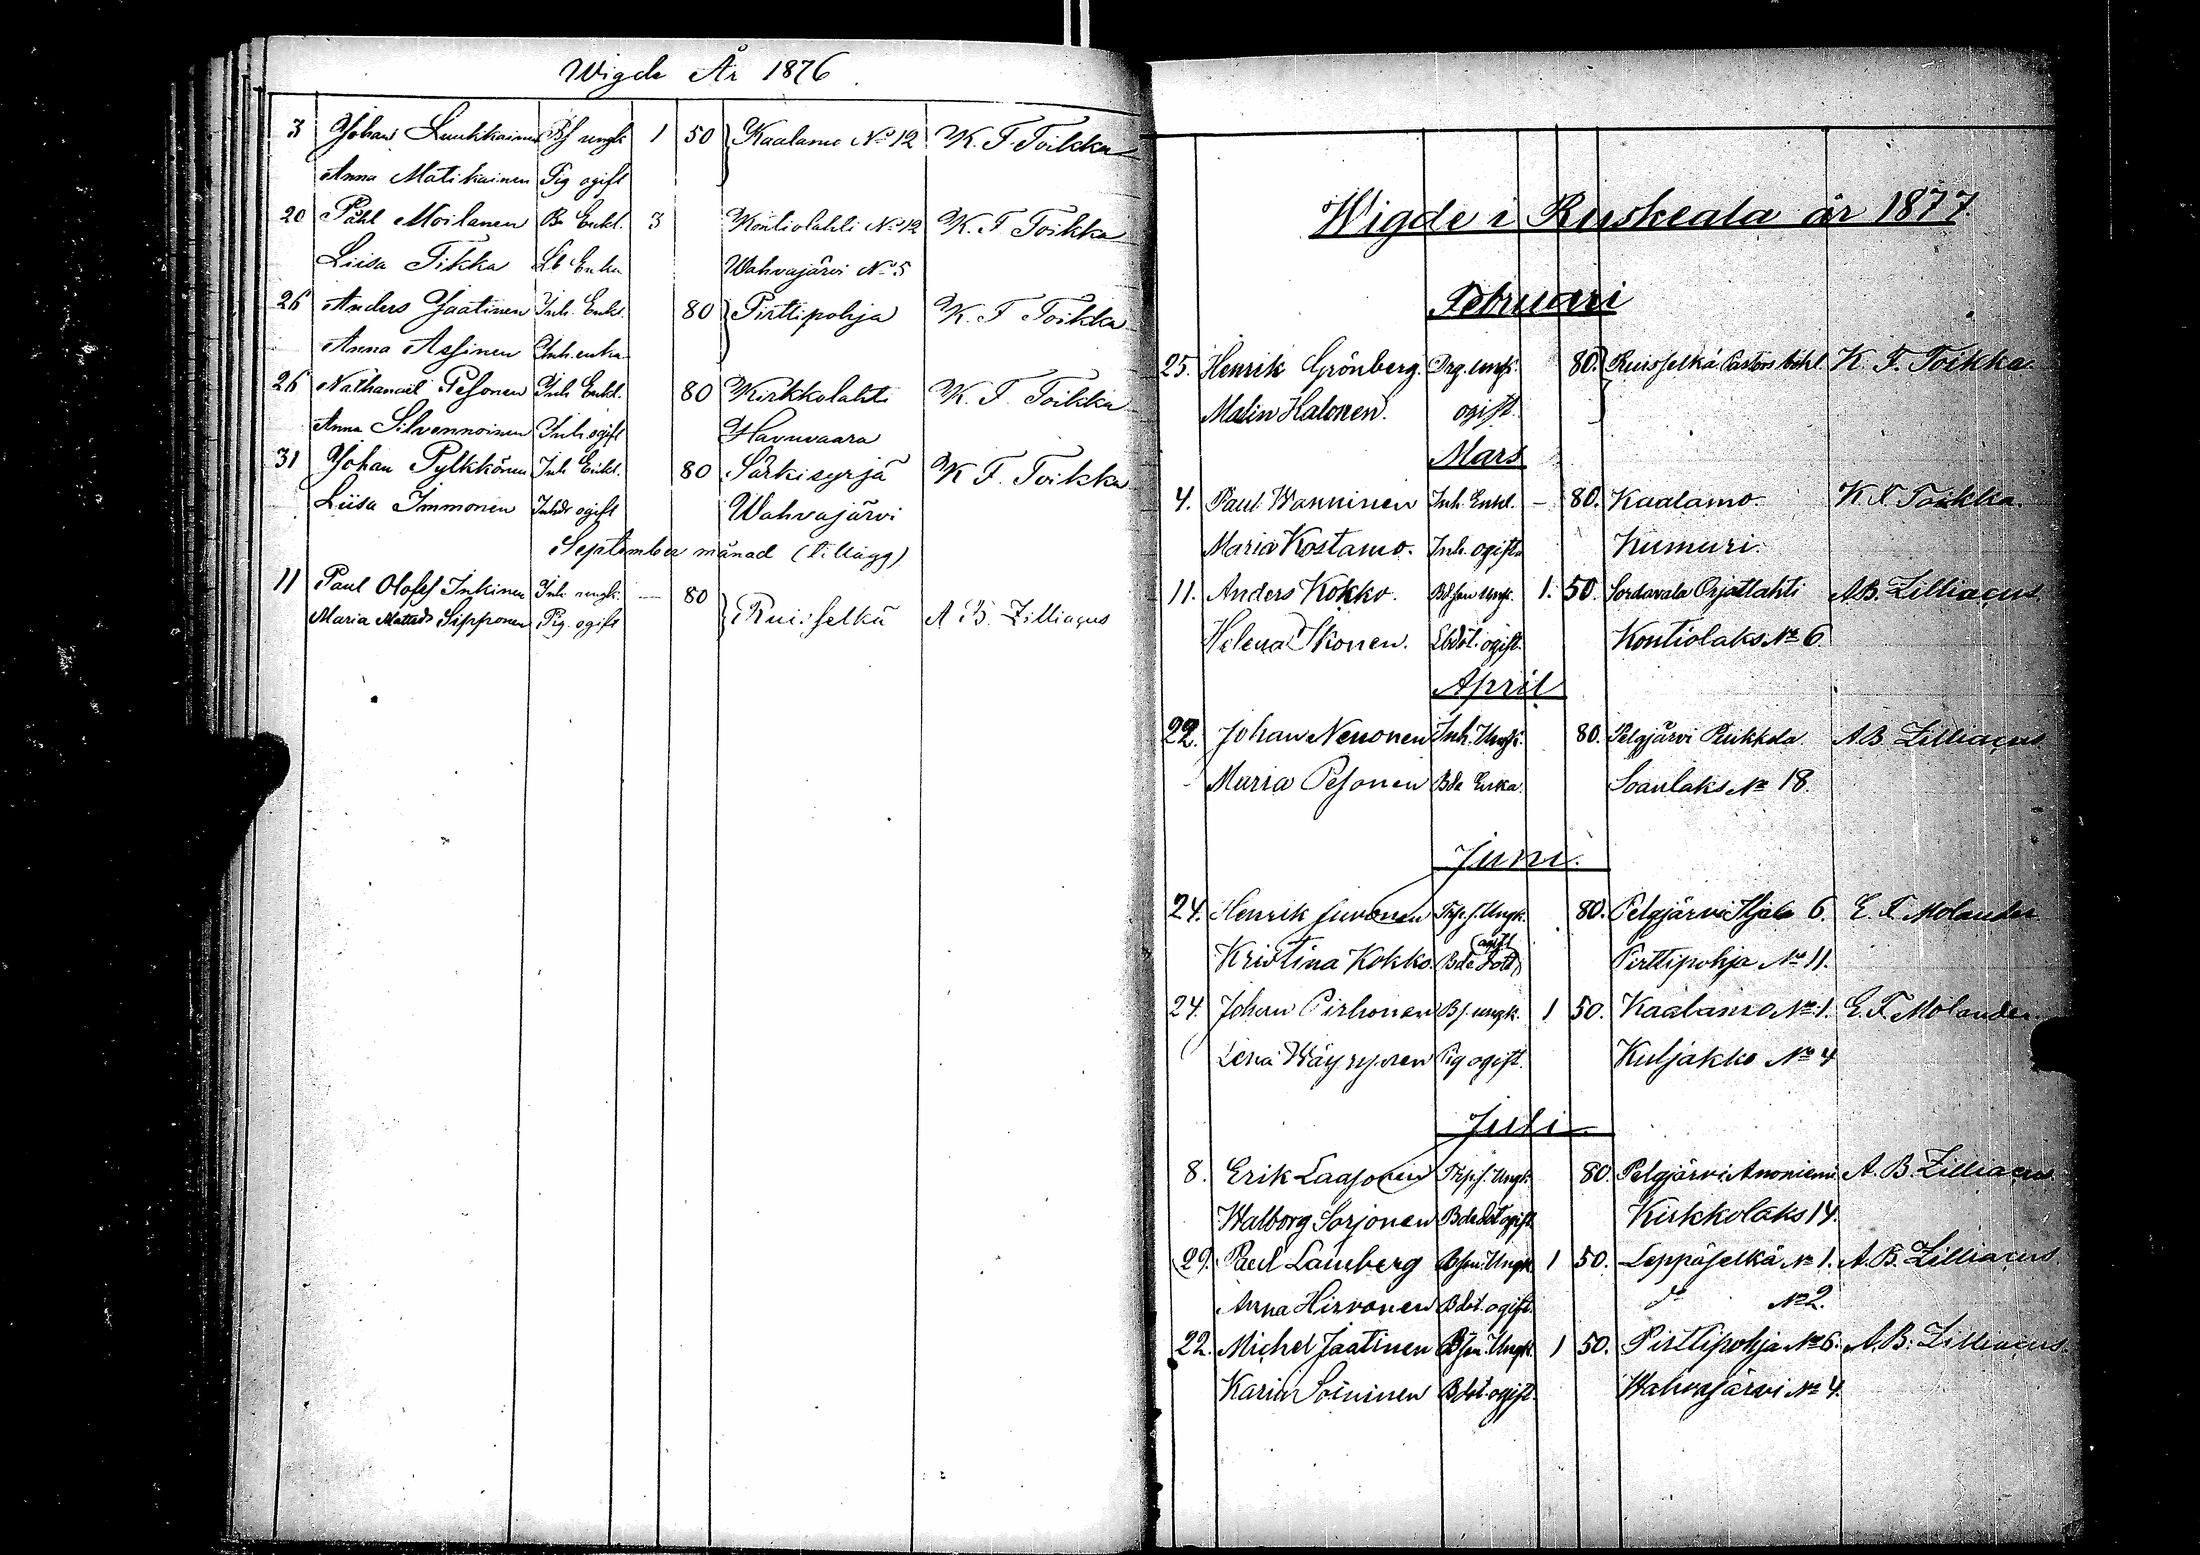 Wigde År 1876
3 Johan Luukkainen Bf ungk 1 50 Kaalamo No 12 K. F. Toikka
Anna Matikainen Pig ogift
20 Påhl Moilanen Bo Enkl. 3 Kontiolahti No 12 K. F. Toikka
Liisa Tikka Lb Enka Wahvajärvi No 5
26 Anders Jaatinen Inh. Enkl. 80 Pirttipohja K. F. Toikka
Anna Assinen Inh. enka
26 Nathanael Pesonen Inh Enkl. 80 Kirkkolahti K. F. Toikka
Anna Silvennoinen Inh. ogift Havuvaara
31 Johan Pylkkönen Inh Enkl. 80 Särkisyrjä K F. Toikka
Liisa Immonen Inhdr ogift Wahvajärvi
September månad (tillägg)
11 Paul Olofsf Inkinen Inh. ungk. — 80 Ruisselkä A. B. Zilliacus
Maria Mattsdr Sipponen Pig. ogift
Wigde i Ruskeala år 1877.
Februari
25. Henrik Grönberg. Drg. ungk. 80. Ruisselkä Pastors bohl. K. F. Toikka.
Malin Halonen. ogift.
Mars
4. Paul Wänninen Inh. Enkl. – 80. Kaalamo. K F. Toikka.
Maria Kostamo. Inh. ogift. Kumuri.
11. Anders Kokko. Bdson Ungk. 1. 50. Sordavala Orjatlahti A.B. Zilliacus.
Helena Ikonen. Lbdot. ogift. Kontiolaks No 6.
April
22. Johan Nenonen Inh. Ungk. 80. Pelgjärvi Ruikkola A.B. Zilliacus
Maria Pesonen Bde Enka. Soanlaks No 18.
Juni.
24. Henrik Juvonen Trp. s. Ungk. 80. Pelgjärvi Iljala 6. E. F. Molander
Kristina Kokko. Bde Dott. (ogift Pirttipohja No 11.
24. Johan Pirhonen Bs. ungk. 1 50. Kaalamo No 1. E. F. Molander
Lena Wäyrynen Pig ogift. Kuljakko No 4
Juli
8. Erik Laasonen Trp. s. Ungk. 80. Pelgjärvi Anoniemi. A. B. Zilliacus
Walborg Sorjonen Bde dot ogift. Kirkkolaks 14.
29. Paul Lamberg Bson. Ungk. 1 50. Leppäselkä No 1. A. B. Zilliacus.
Anna Hirvonen Bdot. ogift. do No 2.
22. Michel Jaatinen Bson. Ungk. 1 50. Pirttipohja No 6. A. B. Zilliacus.
Karin Soininen Bdot. ogift. Wahvajärvi No 4.